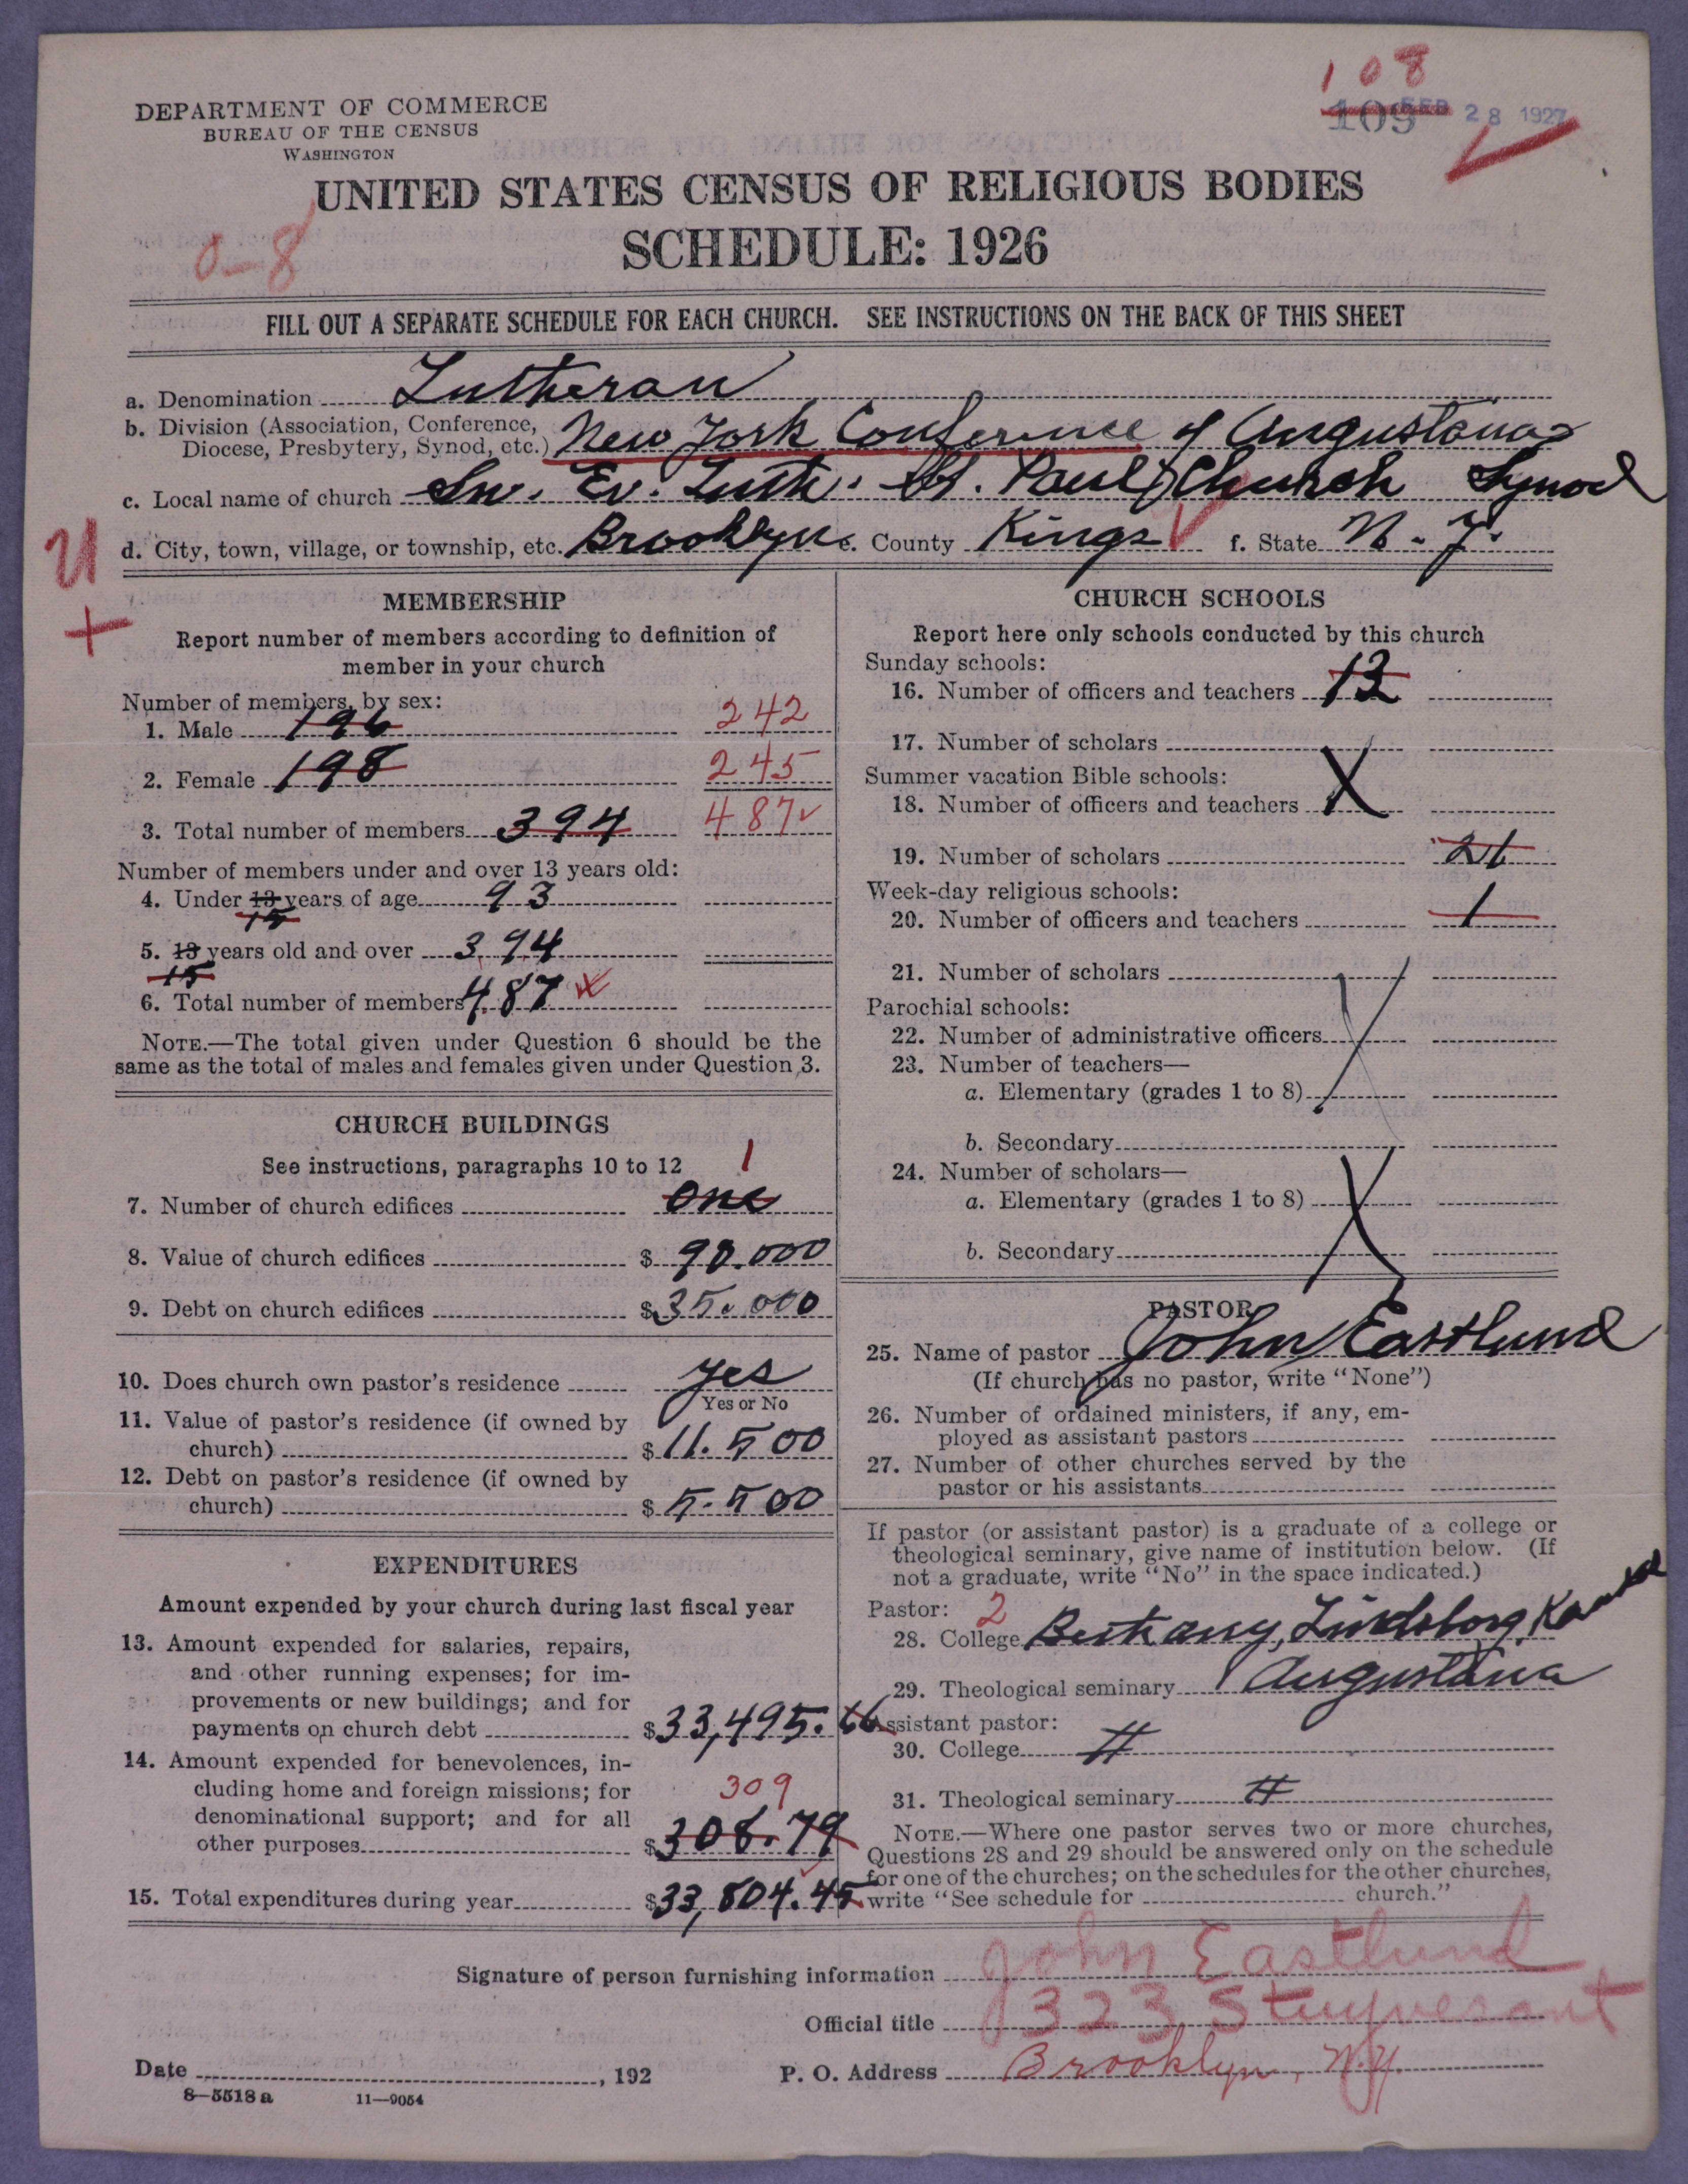 108
109 FEB 28 1927
DEPARTMENT OF COMMERCE
BUREAU OF THE CENSUS
WASHINGTON
UNITED STATES CENSUS OF RELIGIOUS BODIES
0-8
SCHEDULE: 1926
FILL OUT A SEPARATE SCHEDULE FOR EACH CHURCH. SEE INSTRUCTIONS ON THE BACK OF THIS SHEET
a. Denomination Lutheran
b. Division (Association, Conference, Diocese, Presbytery, Synod, etc.) New York Conference of Augustana
c. Local name of church Sw. Ev. Luth. St. Paul Church Synod
d. City, town, village, or township, etc. Brooklyn e. County Kings f. State N. Y.
U
+
MEMBERSHIP
Report number of members according to definition of
member in your church
Number of members, by sex:
1. Male 196 242
2. Female 198 245
3. Total number of members 394 487
Number of members under and over 13 years old:
4. Under 13 years of age 93
15
5. 13 years old and over 394
15
6. Total number of members 487
NOTE.—The total given under Question 6 should be the
same as the total of males and females given under Question 3.
CHURCH BUILDINGS
See instructions, paragraphs 10 to 12
1
7. Number of church edifices one
8. Value of church edifices $ 90.000
9. Debt on church edifices $ 35.000
10. Does church own pastor's residence yes
Yes or No
11. Value of pastor's residence (if owned by
church) $ 11.500
12. Debt on pastor's residence (if owned by
church) $ 5.500
EXPENDITURES
Amount expended by your church during last fiscal year
13. Amount expended for salaries, repairs,
and other running expenses; for im-
provements or new buildings; and for
payments on church debt $ 33,495.66
14. Amount expended for benevolences, in-
cluding home and foreign missions; for
309
denominational support; and for all
other purposes $ 308.79
15. Total expenditures during year $ 33,804.45
CHURCH SCHOOLS
Report here only schools conducted by this church
Sunday schools:
16. Number of officers and teachers
17. Number of scholars
Summer vacation Bible schools:
18. Number of officers and teachers X
19. Number of scholars
Week-day religious schools:
20. Number of officers and teachers 1
21. Number of scholars
Parochial schools:
22. Number of administrative officers
23. Number of teachers—
a. Elementary (grades 1 to 8)
b. Secondary
24. Number of scholars—
a. Elementary (grades 1 to 8)
b. Secondary
PASTOR
25. Name of pastor John Eastlund
(If church has no pastor, write "None")
26. Number of ordained ministers, if any, em-
ployed as assistant pastors
27. Number of other churches served by the
pastor or his assistants
If pastor (or assistant pastor) is a graduate of a college or
theological seminary, give name of institution below. (If
not a graduate, write "No" in the space indicated.)
Pastor: 2
28. College Bethany, Lindsborg, Kansas
29. Theological seminary Augustana
Assistant pastor:
30. College
31. Theological seminary
NOTE.—Where one pastor serves two or more churches,
Questions 28 and 29 should be answered only on the schedule
for one of the churches; on the schedules for the other churches,
write "See schedule for church."
Signature of person furnishing information John Eastlund
Official title 323 Stuyvesant
Date , 192 P. O. Address Brooklyn, N.Y.
8-5518 a 11—9054